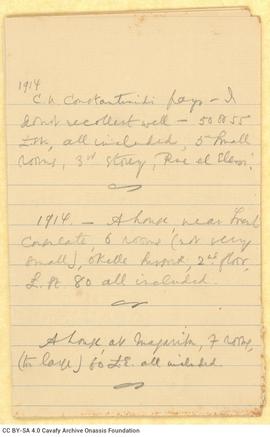 1914
C. N. Constantinidi pays – I
do not recollect well – 50 or 55
all included, 5 small
rooms, 3rd storey, Rue el
1914. – A house, near French
Consulate, 6 rooms (not very
small), Okelle 2nd floor,
80 all included.
A house, at Mazarita, 7 rooms,
(the large) 60 £E. all included
CC BY-SA 4.0 Cavafy Archive Onassis Foundation